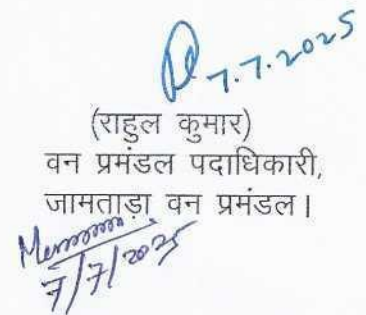 7.7.2025
(राहुल कुमार)
वन प्रमंडल पदाधिकारी,
जामताड़ा वन प्रमंडल।
7/7/2025